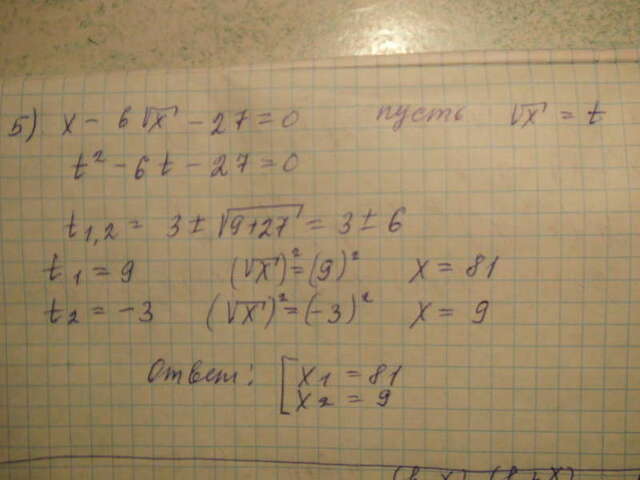 5) x - 6√x - 27 = 0 пусть √x = t
t² - 6t - 27 = 0
t₁,₂ = 3 ± √9+27 = 3 ± 6
t₁ = 9 (√x)² = (9)² x = 81
t₂ = -3 (√x)² = (-3)² x = 9
Ответ: [x₁ = 81
x₂ = 9